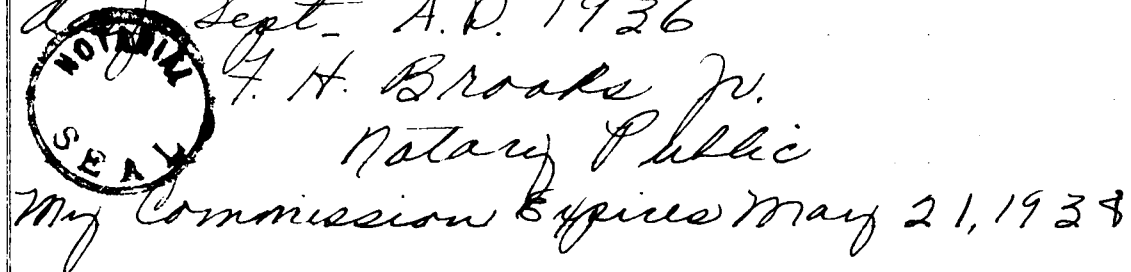 day Sept- A.D. 1936
NOTARIAL
SEAL
F. H. Brooks Jr.
Notary Public
My Commission Expires May 21, 1938